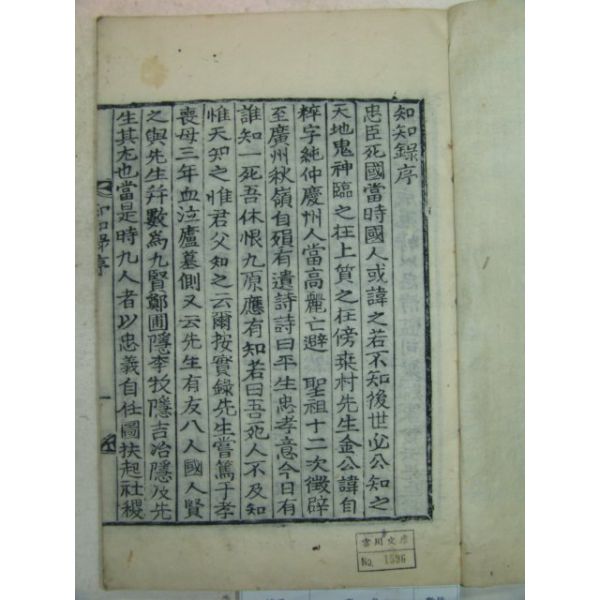 知知錄序
忠臣死國當時國人或諱之若不知後世必公知之
天地鬼神臨之在上質之在傍桒村先生金公諱自
粹字純仲慶州人當高麗亡避 聖祖十二次徵辟
至廣州秋嶺自殞有遺詩詩曰平生忠孝意今日有
誰知一死吾休恨九原應有知若曰吾死人不及知
惟天知之惟君父知之云爾按實錄先生嘗篤于孝
喪母三年血泣廬墓側又云先生有友八人國人賢
之與先生幷數為九賢鄭圃隱李牧隱吉冶隱及先
生其尤也當是時九人者以忠義自任圖扶起社稷
知知錄序
一
雲川文庫
No. 1596